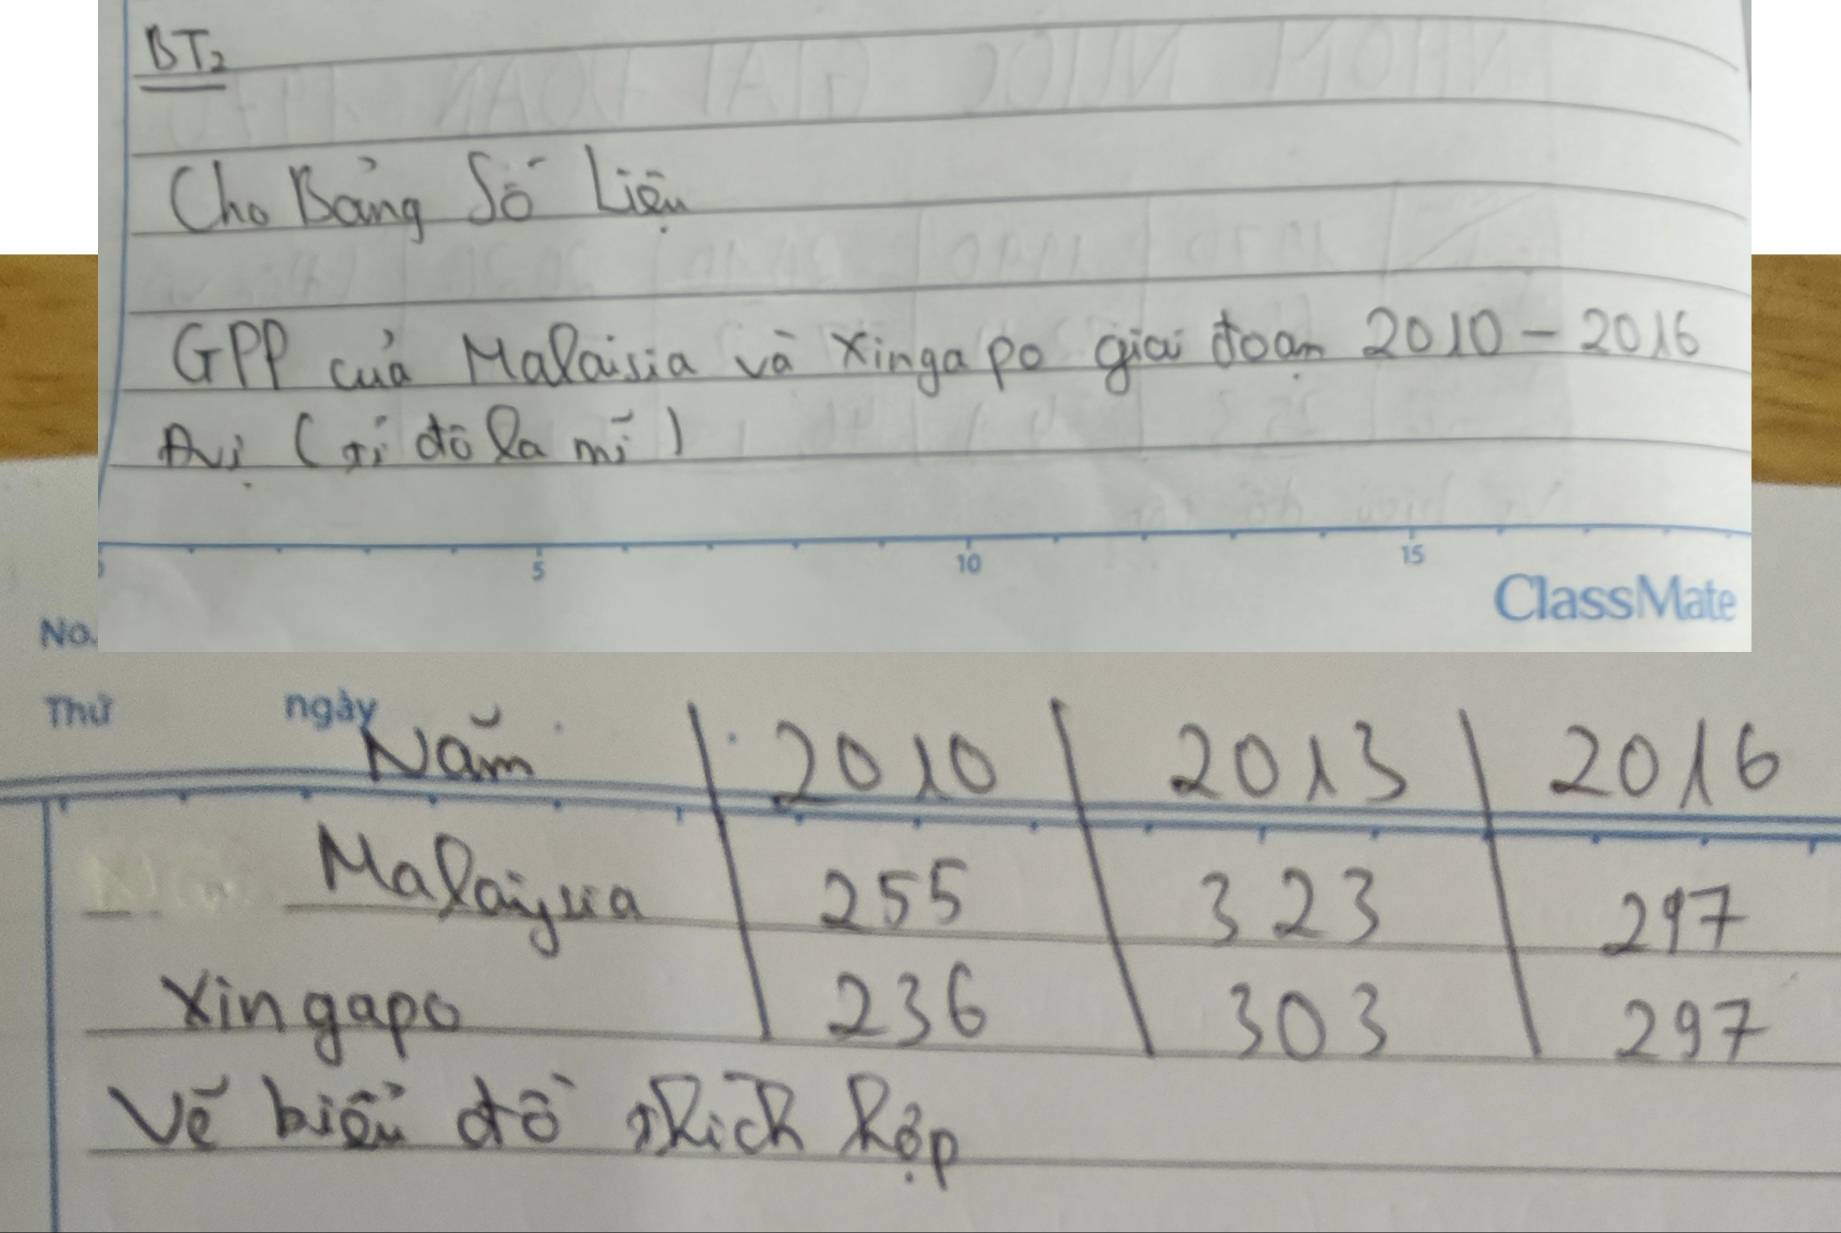 BT2
Cho Bảng Số Liệu
GPP của Malaisia và Xingapo giai đoạn 2010 - 2016
Đvị (tỉ đô la mĩ)
5 10 15
ClassMate
No.
Thứ ngày
Năm 2010 2013 2016
Malaiysia 255 323 297
Xingapo 236 303 297
Vẽ biểu đồ thích hợp